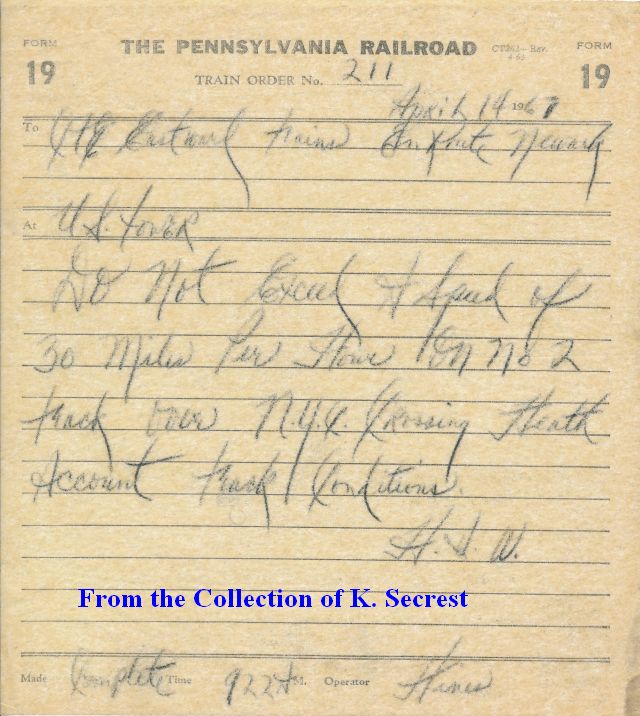 FORM 19 THE PENNSYLVANIA RAILROAD CT262—Rev. 4-65 FORM 19
TRAIN ORDER No. 211
April 14 1967
To C&E Eastward trains Enroute Newark
At U.S. Tower
Do Not Exceed A Speed of
30 Miles Per Hour On No 2
track over N.Y.C. Crossing Heath
Account track Conditions.
H. S. W.
From the Collection of K. Secrest
Made Complete Time 922 A M. Operator Hines